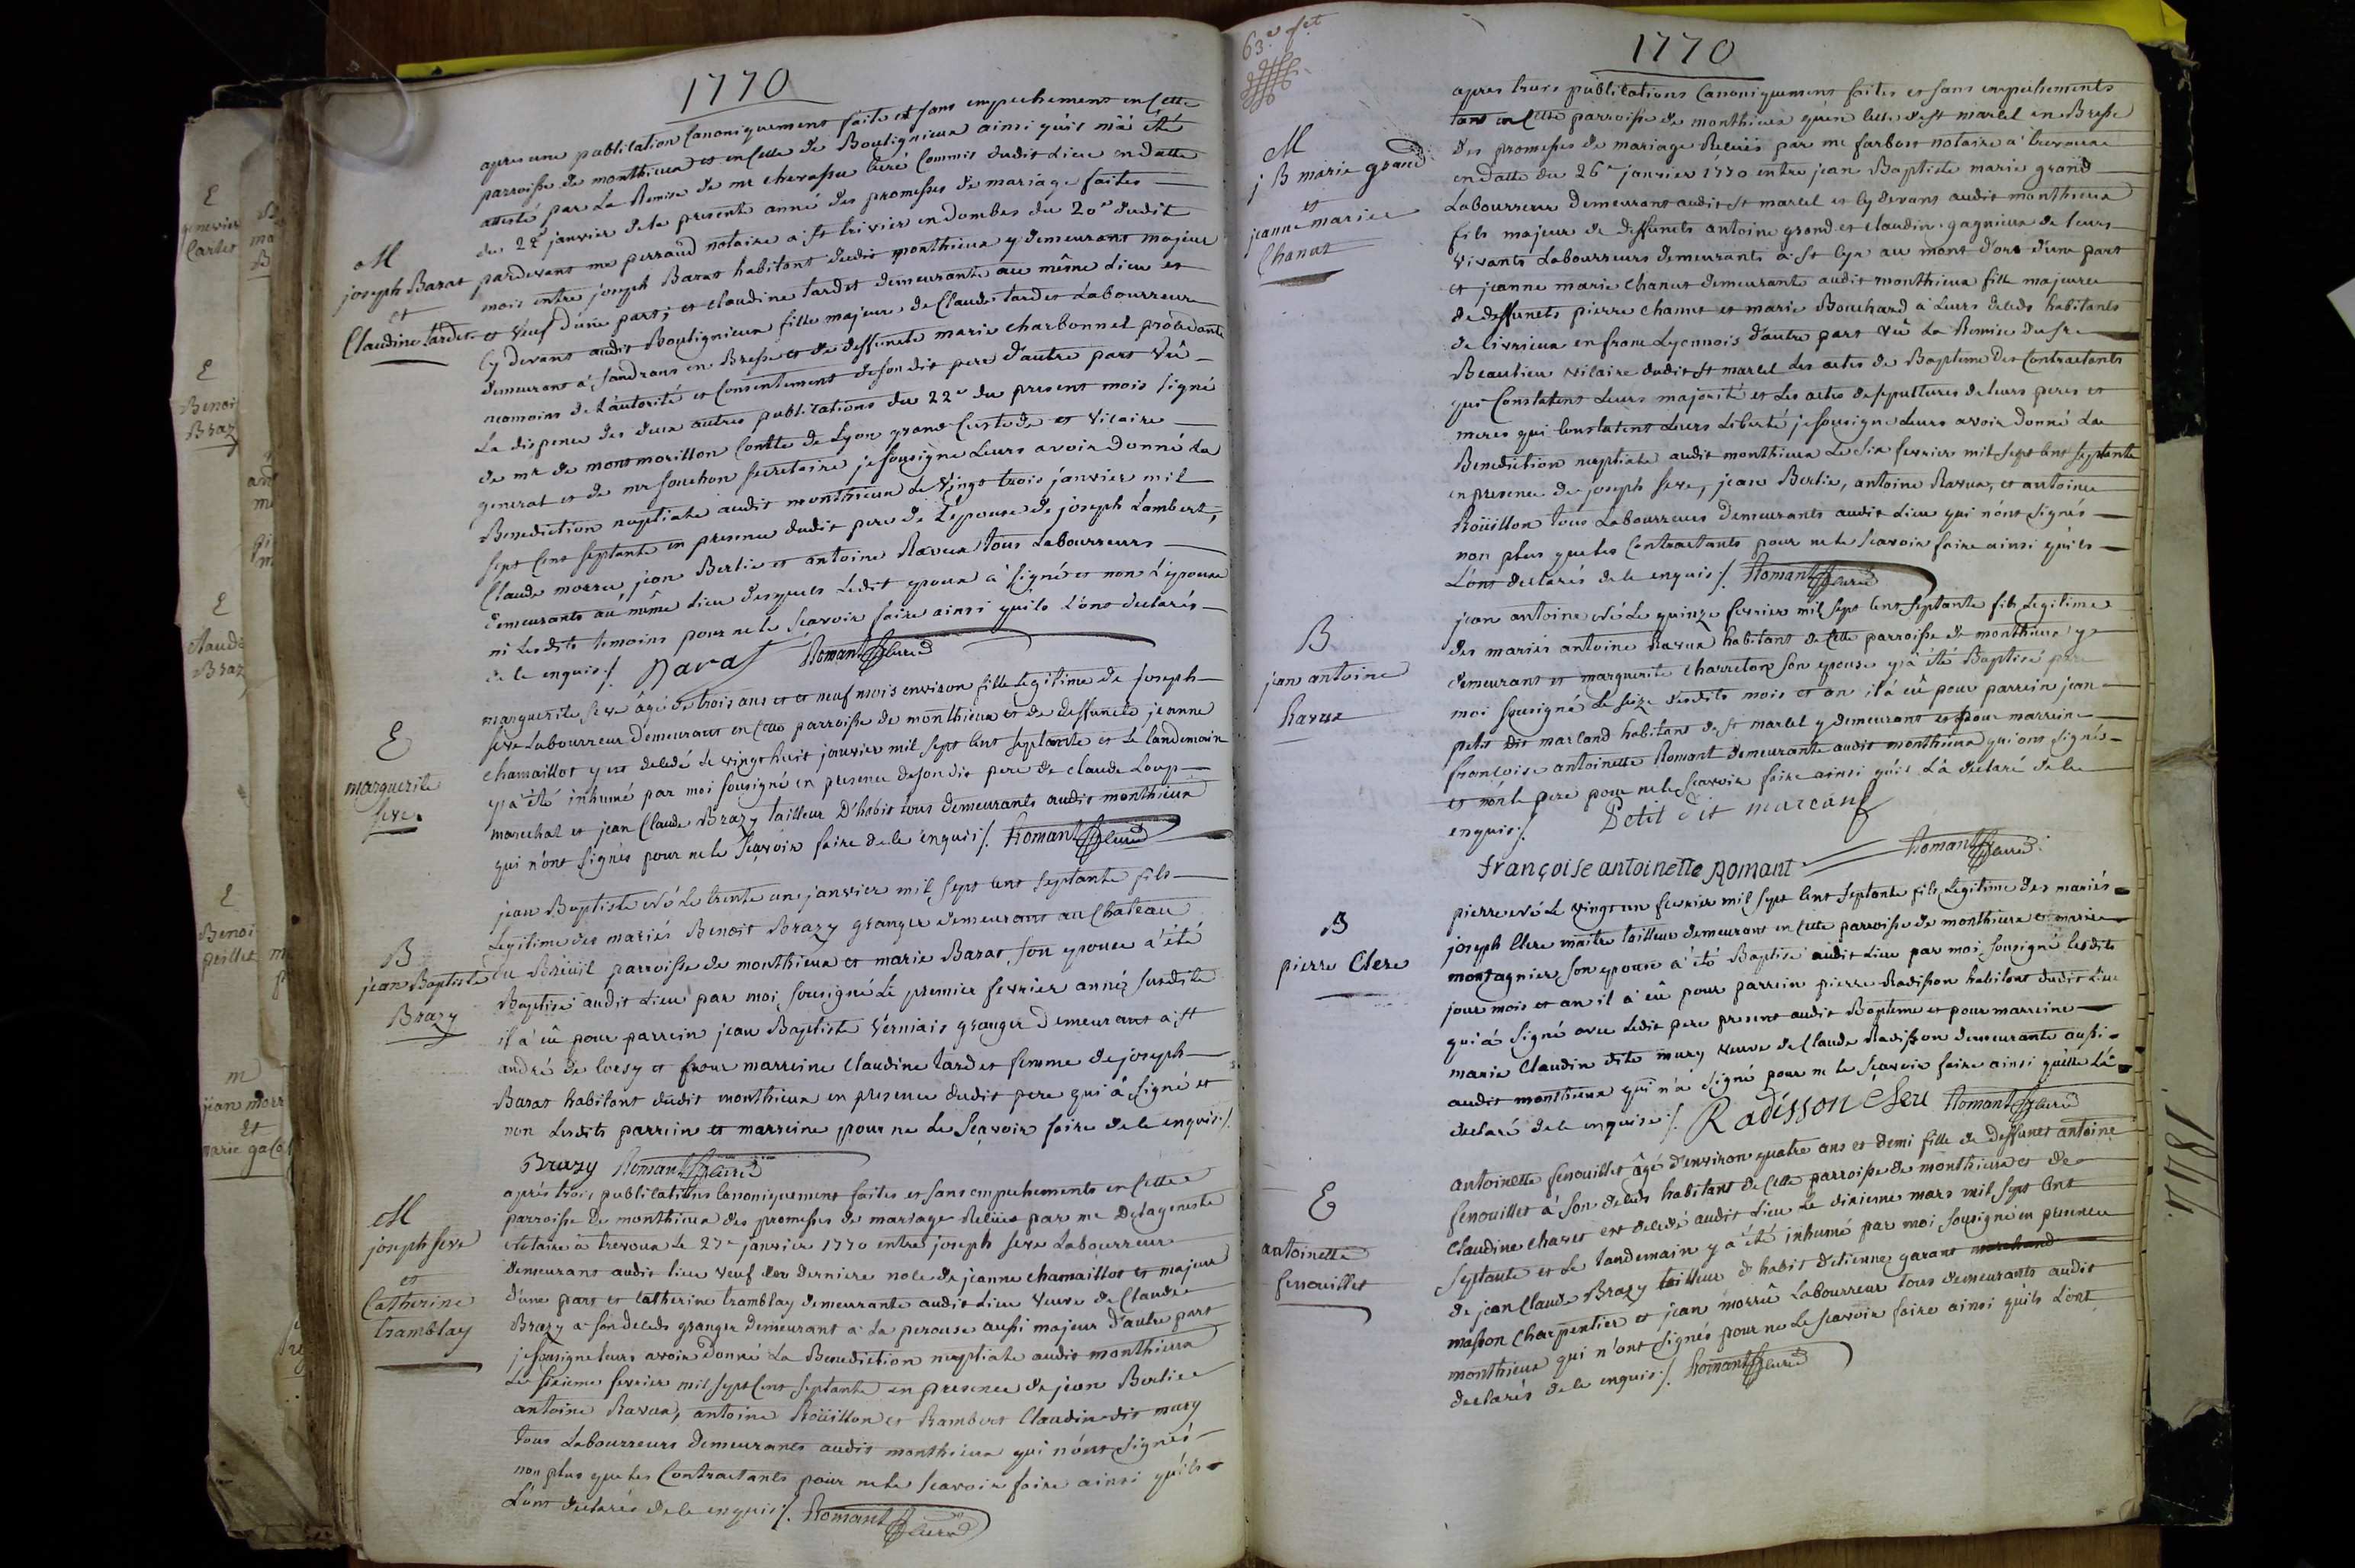 1770
apres une publication Canoniquement faite et sans empechement en Cette
parroisse de monthieux et en Celle de Bouligneux ainsi qu'il m'a été
attesté par La Remise de mr chevassu Curé Commis dudit Lieu en datte
du 22e janvier de la presente anné des promesses de mariage faites
M
joseph Barat
et
Claudine tardet
pardevant me perraud notaire a St trivier en dombes du 20e dudit
mois entre joseph Barat habitant dudit monthieux y demeurant majeur
et veuf d'une part, et claudine tardet demeurante au même Lieu et
Cy devant audit Bouligneux fille majeure de Claude tardet Labourreur
demeurant a Sandrans en Bresse et de deffunete marie charbonnet procedante
neamoins de L'autorité et Consentement de son dit pere d'autre part vû
La dispence des deux autres publications du 22e du present mois signé
de mr de montmorillon Comte de Lyon grand Custode et vicaire
general et de mr souchon secretaire je sousigné Leurs avoir donné La
Benediction nuptiale audit monthieux Le vingt trois janvier mil
sept Cent septante en presence dudit pere de L'épouse de joseph Lambert,
Claude morru, jean Berlie et antoine Ravux tous Labourreurs
demeurants au même Lieu desquels Ledit epoux a signé et non L'epouse
ni Lesdits temoins pour ne le sçavoir faire ainsi qu'ils L'ont declarés
de le enquis /. Barat Romant Curé
E
marguerite
seve
marguerite seve âgé de trois ans et et neuf mois environ fille Legitime de joseph
seve Labourreur demeurant en Cette parroisse de monthieux et de deffunete jeanne
chamaillot y est decedé Le vingt huit janvier mil sept Cent septante et Le landemain
y a été inhumé par moi sousigné en presence de son dit pere de claude Loup
marechal et jean Claude Brazy tailleur D'habit tous demeurants audit monthieux
qui n'ont signés pour ne le sçavoir faire de le enquis /. Romant Curé
B
jean Baptiste
Brazy
jean Baptiste né Le trente une janvier mil sept Cent septante fils
Legitime des mariés Benoit Brazy granger demeurant au Chateau
du Breüil parroisse de monthieux et marie Barat, son epouse a été
Baptisé audit Lieu par moi sousigné Le premier fevrier anné susdite
il a eû pour parrein jean Baptiste verniais granger demeurant a St
andré de Corcy et pour marreine Claudine tardet femme de joseph
Barat habitant dudit monthieux en presence dudit pere qui a signé et
non Lesdits parrein et marreine pour ne Le sçavoir faire de le enquis /.
Brazy Romant Curé
M
joseph seve
et
Catherine
tramblay
après trois publications Canoniquement faites et sans empechements en Cette
parroisse de monthieux des promesses de mariage Reçües par me Delageneste
Notaire a trevoux Le 27e janvier 1770 entre joseph seve Labourreur
demeurant audit lieu veuf en derniere noce de jeanne chamaillot et majeur
d'une part et Catherine tramblay demeurante audit Lieu veuve de Claude
Brazy a son deceds granger demeurant a La perouse aussi majeur d'autre part
je sousigné Leurs avoir donné La Benediction nuptiale audit monthieux
Le sixieme fevrier mil sept Cent septante en presence de jean Berlie
antoine Ravux, antoine Roüillon et Rambert Claudin dit mury
tous Labourreurs demeurants audit monthieux qui n'ont signés
non plus que les Contractants pour ne le sçavoir faire ainsi qu'ils
L'ont declarés de le enquis /. Romant Curé
63e fet
1770
M
j B marie grand
et
jeanne marie
Chanut
apres trois publications Canoniquement faites et sans empechements
tant en Cette parroisse de monthieux qu'en Celle de St marcel en Bresse
des promesses de mariage Reçües par me farbost notaire a trevoux
en datte du 26e janvier 1770 entre jean Baptiste marie grand
Labourreur demeurant audit St marcel et Cy devant audit monthieux
fils majeur de deffunets antoine grand et claudine gagnieux de leurs
vivants Labourreurs demeurants a St Cyr au mont d'ors d'une part
et jeanne marie Chanut demeurante audit monthieux fille majeure
de deffunets pierre chanut et marie Bouchard a Leurs deceds habitants
de Civrieux en franc Lyonnois d'autre part vû La Remise du sr
Beaulieu vicaire dudit St marcel Les actes de Bapteme des Contractants
qui Constatent Leurs majorité et Les actes de sepultures de leurs peres et
meres qui Constatent Leurs Liberté je sousigné Leurs avoir donné La
Benediction nuptiale audit monthieux Le six fevrier mil sept Cent septante
en presence de joseph seve, jean Berlie, antoine Ravux, et antoine
Roüillon tous Labourreurs demeurants audit Lieu qui n'ont signés
non plus que les Contractants pour ne le sçavoir faire ainsi qu'ils
L'ont declarés de le enquis /. Romant Curé
B
jean antoine
Ravux
jean antoine né Le quinze fevrier mil sept Cent septante fils Legitime
des mariés antoine Ravux habitant de Cette parroisse de monthieux y
demeurant et marguerite charreton son epouse y a été Baptisé par
moi sousigné Le seize desdits mois et an il a eû pour parrein jean
petit dit marcand habitant de St marcel y demeurant et pour marreine
françoise antoinette Romant demeurante audit monthieux qui ont signés
et non le pere pour ne le sçavoir faire ainsi qu'il L'a declaré de le
enquis /. Petit dit marcand
françoise antoinette Romant Romant Curé
B
pierre Clere
pierre né Le vingt un fevrier mil sept Cent septante fils Legitime des mariés
joseph Clere maitre tailleur demeurant en Cette parroisse de monthieux et marie
montagnier son epouse a été Baptisé audit Lieu par moi sousigné lesdits
jour mois et an il a eû pour parrein pierre Radisson habitant dudit Lieu
qui a signé avec Ledit pere present audit Bapteme et pour marreine
marie Claudin dite mury veuve de Claude Radisson demeurante aussi
audit monthieux qui n'a signé pour ne le sçavoir faire ainsi qu'elle L'a
declaré de le enquise /. Radisson Romant Curé
E
antoinette
fenouillet
antoinette fenouillet âgé d'environ quatre ans et demi fille de deffunet antoine
fenouillet a son deceds habitant de Cette parroisse de monthieux et de
Claudine chavet est decedé audit Lieu Le dixieme mars mil sept Cent
septante et Le landemain y a été inhumé par moi sousigné en presence
de jean Claude Brazy tailleur d'habit d'etienne garant marchand
masson Charpentier et jean morrû Labourreur tous demeurants audit
monthieux qui n'ont signés pour ne Le sçavoir faire ainsi qu'ils L'ont
declarés de le enquis /. Romant Curé